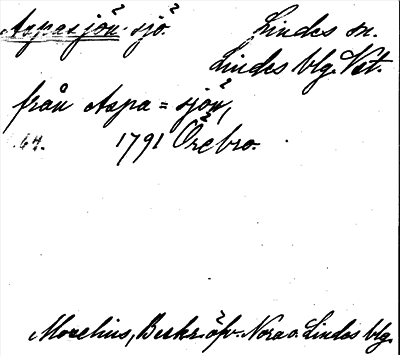 Aspasjön. sjö. Lindes sn.
Lindes blg. Vst.
från Aspa=sjön,
64. 1791 Örebro.
Morelius, Beskr. öfv. Nora o. Lindes blg.